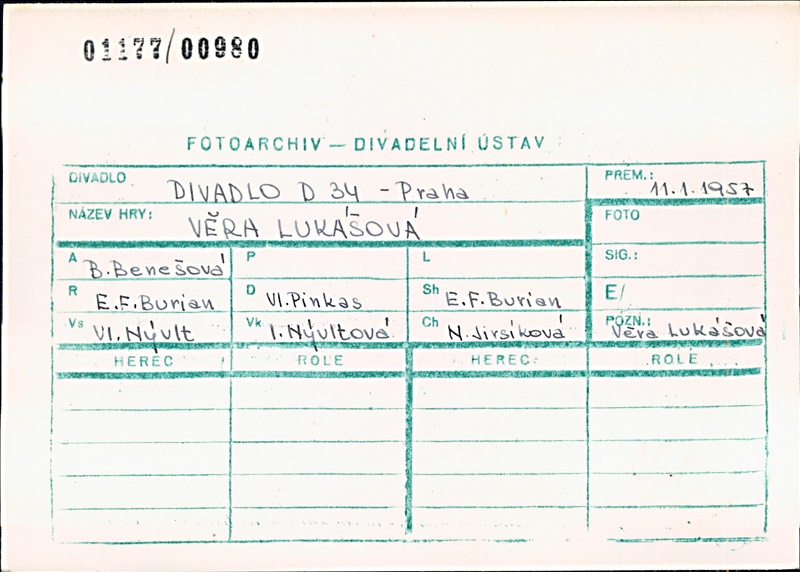 01177/00980
FOTOARCHIV — DIVADELNÍ ÚSTAV
DIVADLO DIVADLO D 34 - Praha PREM.: 11.1.1957
NÁZEV HRY: VĚRA LUKÁŠOVÁ FOTO
A B. Benešová P L SIG.:
R E.F. Burian D Vl. Pinkas Sh E.F. Burian E/
Vs Vl. Nývlt Vk I. Nývltová Ch N. Jirsíková POZN.: Věra Lukášová
HEREC ROLE HEREC ROLE